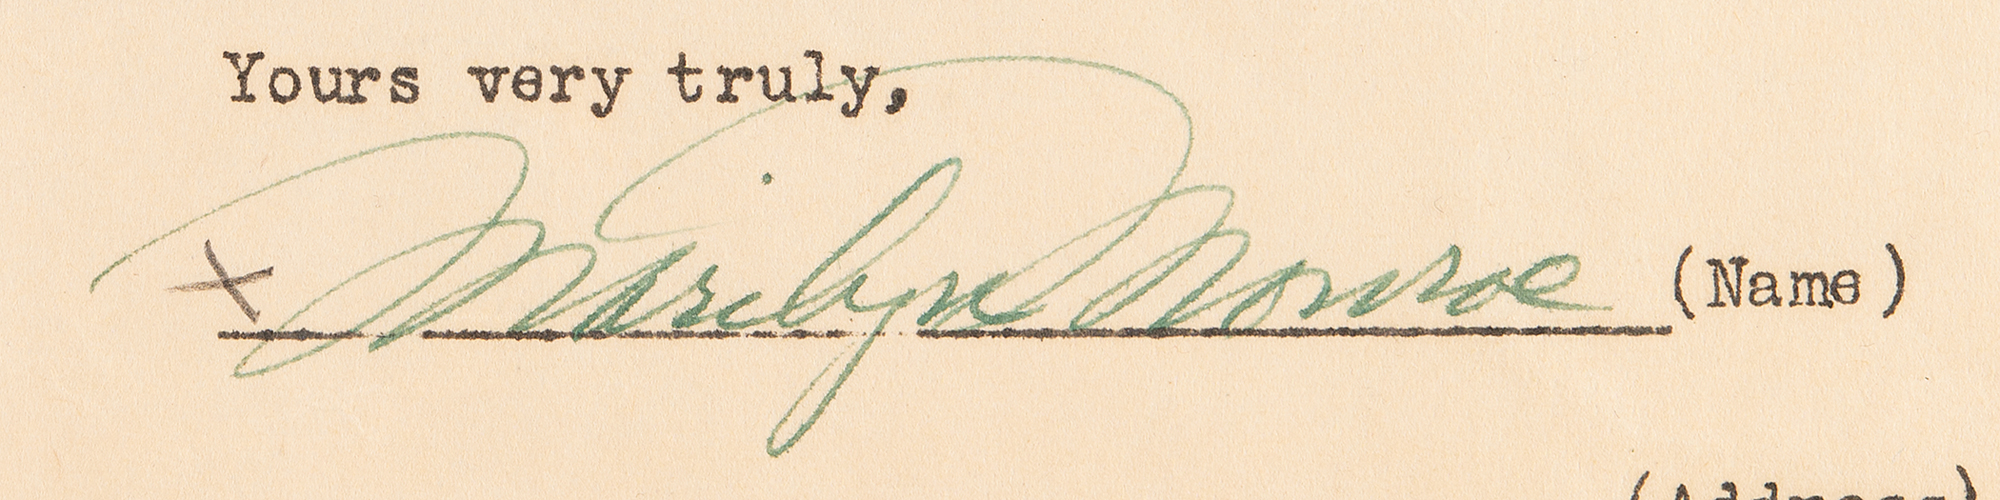 Yours very truly,
x Marilyn Monroe (Name)
(Address)